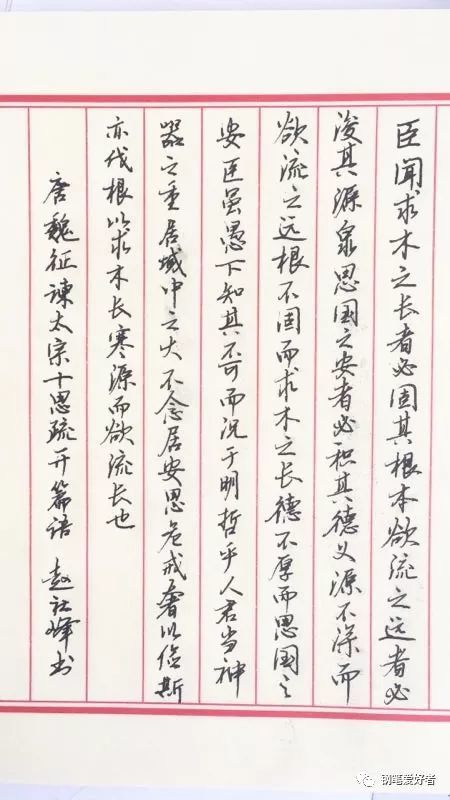 臣闻求木之长者必固其根本欲流之远者必
浚其源泉思国之安者必积其德义源不深而
欲流之远根不固而求木之长德不厚而思国之
安臣虽愚下知其不可而况于明哲乎人君当神
器之重居域中之大不念居安思危戒奢以俭斯
亦伐根以求木长塞源而欲流长也
唐魏征谏太宗十思疏开篇语 赵社峰书
钢笔爱好者